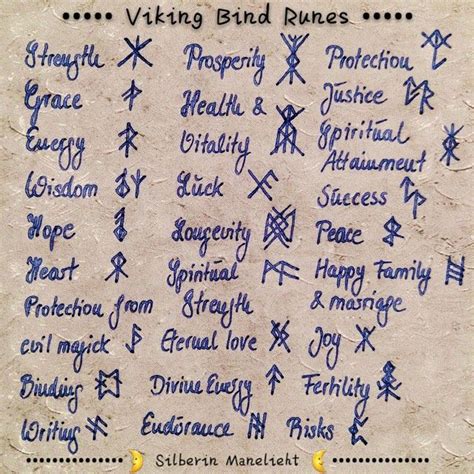 Viking Bind Runes
Strength
Grace
Energy
Wisdom
Hope
Heart
Protection from
evil magick
Binding
Writing
Prosperity
Health &
Vitality
Luck
Longevity
Spiritual
Strength
Eternal love
Divine Energy
Endurance
Protection
Justice
Spiritual
Attainment
Success
Peace
Happy Family
& marriage
Joy
Fertility
Risks
Silberin Manelieht